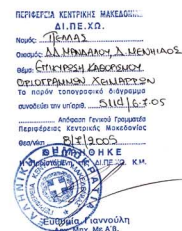 ΠΕΡΙΦΕΡΕΙΑ ΚΕΝΤΡΙΚΗΣ ΜΑΚΕΔΟΝ
ΔΙ.ΠΕ.ΧΩ.
Νομός: ΠΕΛΛΑΣ
Οικισμός: ΔΔ ΜΑΝΔΑΛΟΥ, Δ. ΜΕΝΗΙΔΟΣ
Θέμα: ΕΠΙΚΥΡΩΣΗ ΚΑΘΟΡΙΣΜΟΥ
ΟΡΙΟΓΡΑΜΜΩΝ ΧΕΙΜΑΡΡΩΝ
Το παρόν τοπογραφικό διάγραμμα
συνοδεύει την υπ'αριθ. 5114/6-7-05
Απόφαση Γενικού Γραμματέα
Περιφέρειας Κεντρικής Μακεδονίας
Θεσ/νίκη 8/7/2005
ΘΕΩΡΗΘΗΚΕ
Η Προϊσταμένη της ΔΙ.ΠΕ.ΧΩ. Κ.Μ.
ΕΛΛΗΝΙΚΗ ΔΗΜΟΚΡΑΤΙΑ
Ευθυμία Γιαννούλη
Αρχ. Μηχ. Με Α'β.